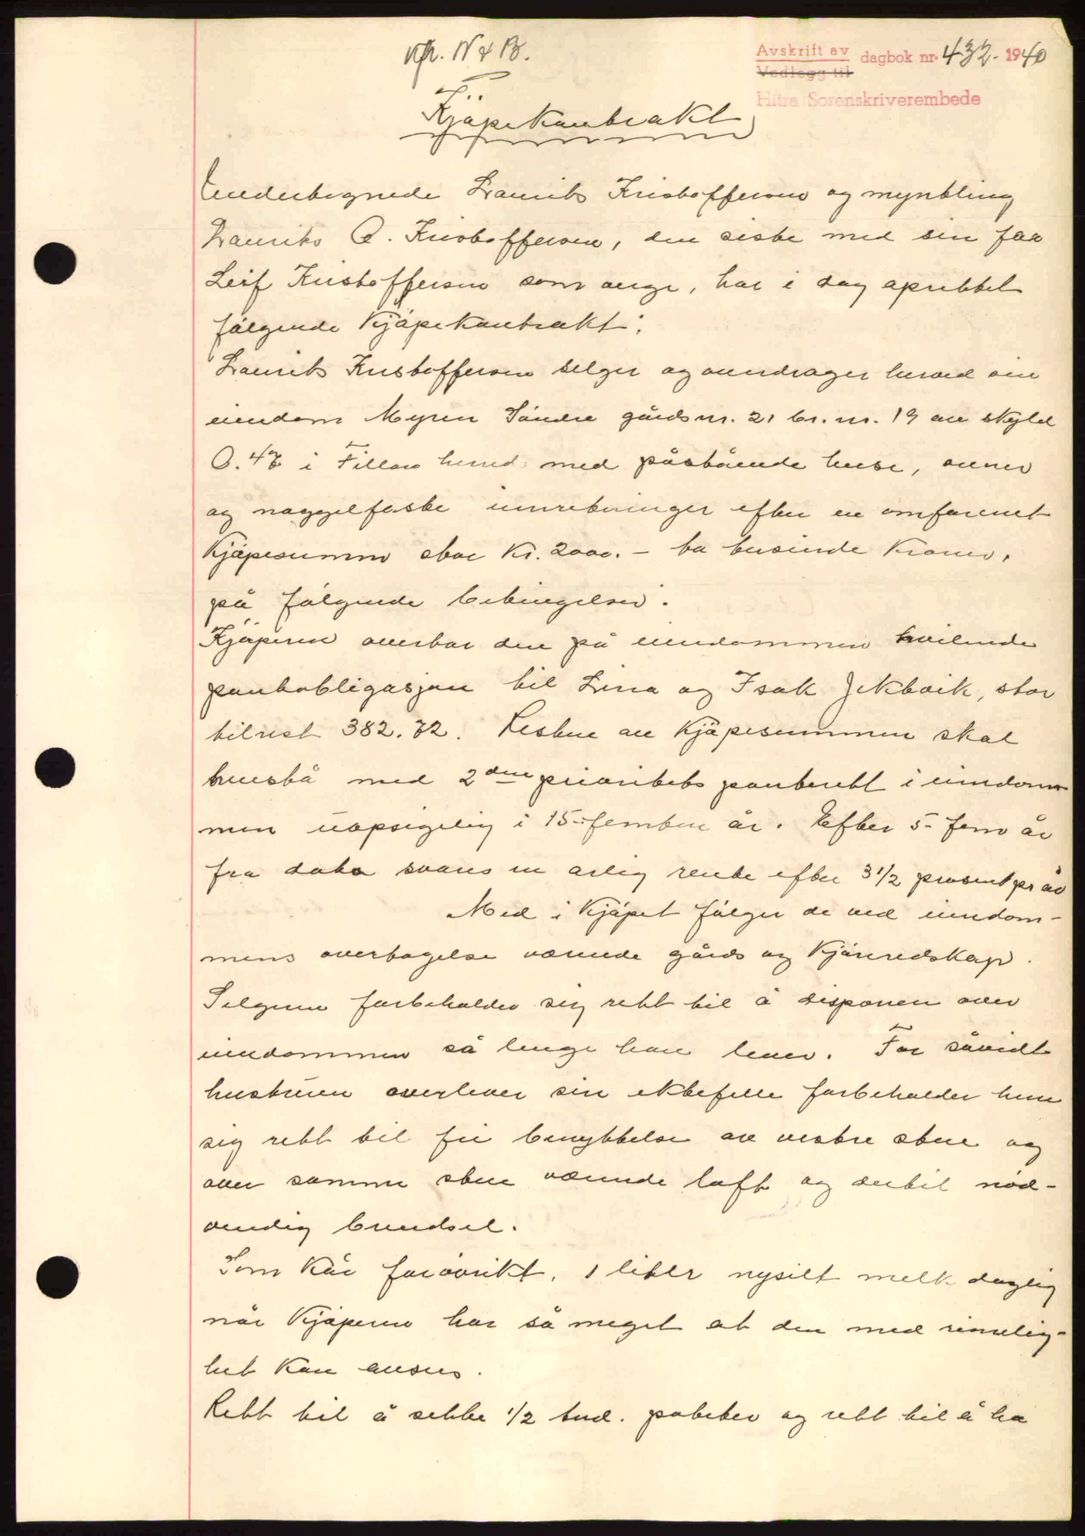 Avskrift av
Vedlegg til
dagbok nr. 432. 1940
Hitra Sorenskriverembede
Kjøpekontrakt
Undertegnede Laurits Kristoffersen og myndling
Laurits O. Kristoffersen, den siste med sin far
Leif Kristoffersen som verge, har i dag oprettet
følgende kjøpekontrakt:
Laurits Kristoffersen selger og overdrager herved sin
eiendom Myren Søndre gårdsnr. 21 br. nr. 19 av skyld
0.47 i Fillan herred med påstående huse, ovner
og naggelfaste innretninger efter en omforenet
kjøpesumm stor kr. 2000.- to tusinde kroner,
på følgende betingelser.
Kjøperen overtar den på eiendommen hvilende
pantobligasjon til Lina og Isak Jektvik, stor
tilrest 382.72. Resten av kjøpesummen skal
henstå med 2 den prioritets panterett i eiendom-
men uopsigelig i 15-femten år. Efter 5- fem år
fra dato svares en årlig rente efter 3 1/2 prosent pr år
Med i kjøpet følger de ved eiendom-
mens overtagelse værende gårds og kjøreredskap.
Selgeren forbeholder sig rett til å disponere over
eiendommen så lenge han lever. For såvidt
hustruen overlever sin ektefelle forbeholder hun
sig rett til fri benyttelse av vestre stue og
over samme stue værende loft og dertil nød-
vendig brendsel.
Som kår forøvrikt. 1 liter nysilt melk daglig
når kjøperen har så meget at den med rimelig-
het kan ansees.
Rett til å sette 1/2 tnd. poteter og rett til å ha